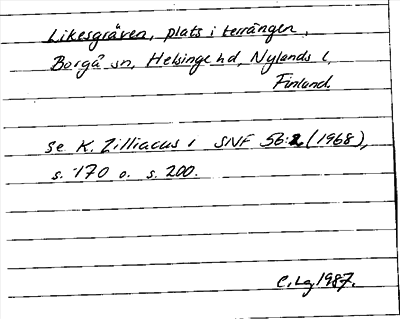 Likesgräven, plats i terrängen,
Borgå sn, Helsinge hd, Nylands l,
Finland.
Se K. Zilliacus i SNF 56:2 (1968),
s. 170 o. s. 200.
C. Lg 1987.